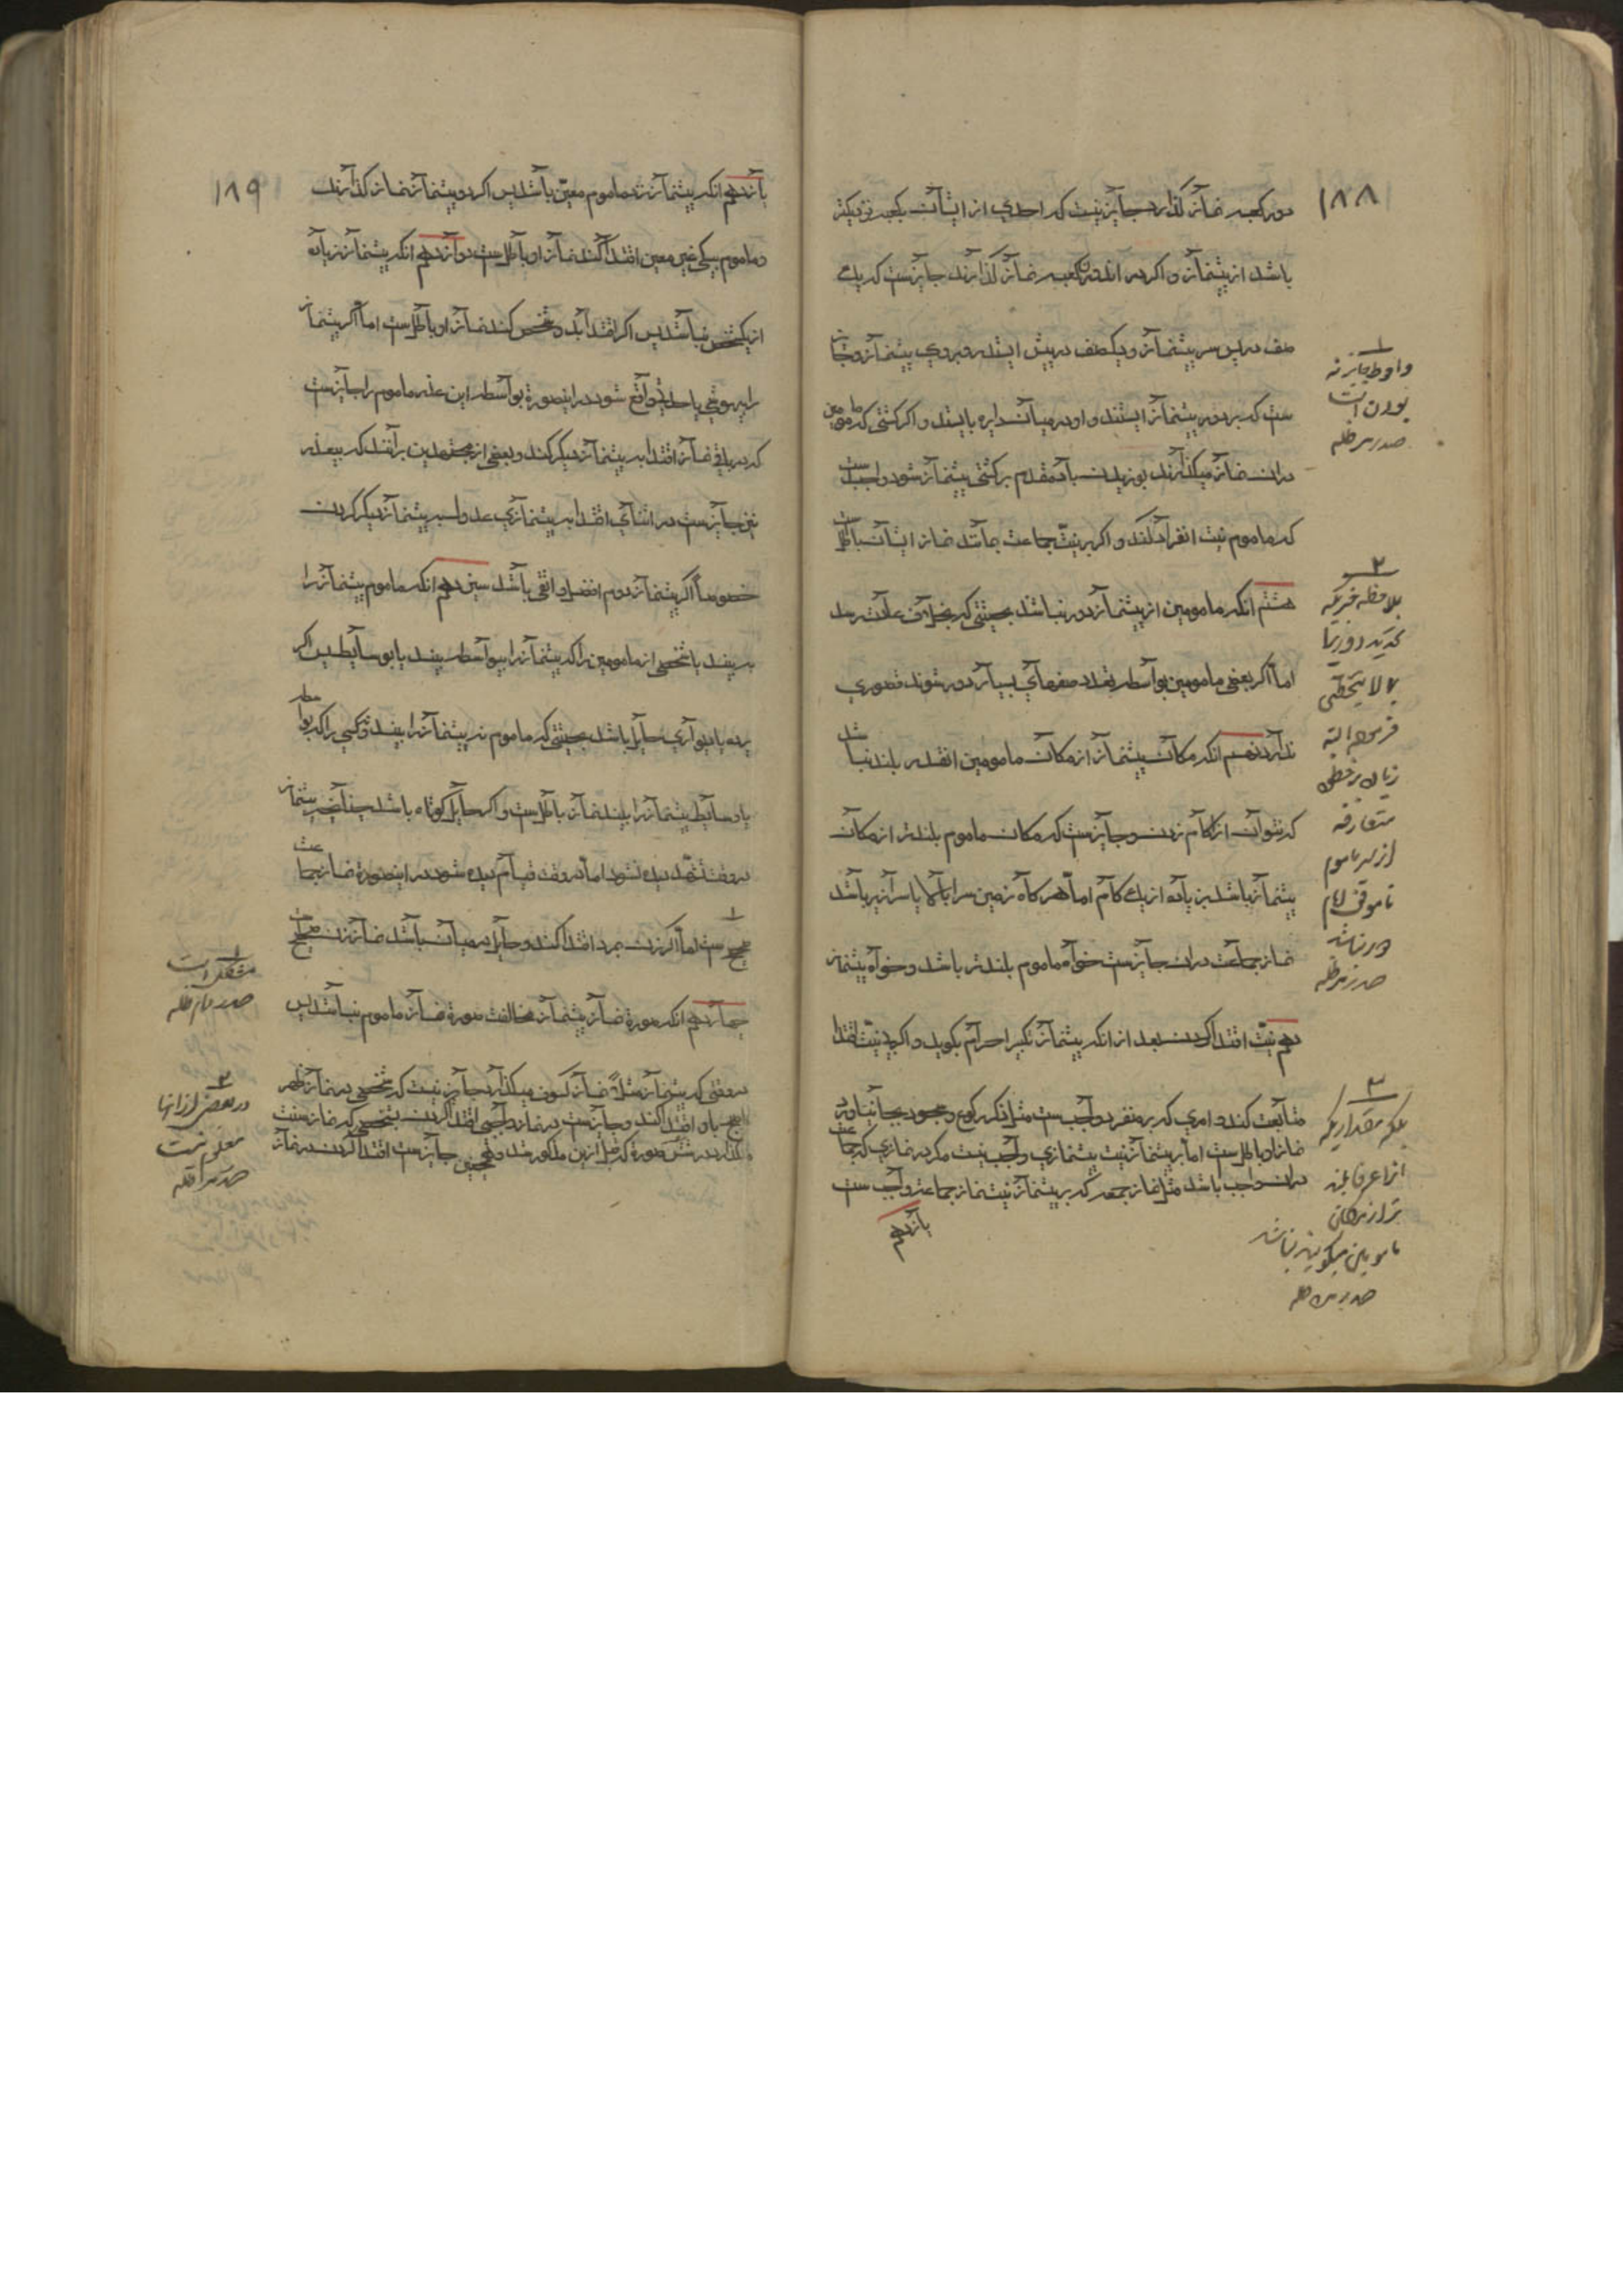 ۱۸۸
دور کعبه نماز گذارد جایز نیست که احدی از ایشان بکعبه نزدیکتر
باشد از پیشنماز و اگر در اندرون کعبه نماز گذارند جایزست که یک
صف در پس سر پیشنماز و یکصف در پیش ایستد روبروی پیشنماز و
ست که بر دور پیشنماز ایستند و او در میان دایره بایستد و اگر کشتی که مامومین
در ان نماز میکذارند بوزیدن باد مقدم بر کشتی پیشنماز شود واجبست
که ماموم نیت انفراد کند و اگر بر نیت جماعت بماند نماز ایشان باطل ست
هشتم انکه مامومین از پیشنماز دور نباشد بحیثیتی که بخلاف عادت رسد
اما اگر بعضی مامومین بواسطه تعدد صفهای بسیار دور شوند قصوری
ندارد نهم انکه مکان پیشنماز از مکان مامومین انقدر بلند نباشد
که نتوان از کام زدن و جایزست که مکان ماموم بلندتر از مکان
پیشنماز باشد بزیاده از یک کام اما هر کاه زمین سرابالا یا سرازیر باشد
نماز جماعت در ان جایزست خواه ماموم بلندتر باشد و خواه پیشنماز
دهم نیت اقتدا کردن بعد از انکه پیشنماز تکبیر احرام بکوید و اگر بی نیت اقتدا
متابعت کند و امری که بر منفرد واجب ست مثل ذکر رکوع و سجود بجا نیاورد
نماز او باطل ست اما بر پیشنماز نیت پیشنمازی واجب نیست مگر در نمازی که جماعت
در ان واجب باشد مثل نماز جمعه که بر پیشنماز نیت نماز جماعت واجب ست
یازدهم
۱
واحوط جایز نه
بودن است
صدر مد ظله
۲
بملاحظه خبریکه
تحدید دور بما
لا یتخطی
فرموده البته
زیاده بر خطی
متعارفه
از سر ماموم
تا موقف امام
دور نباشد
صدر مد ظله
۳
بلکه بمقداریکه
انرا عرفا بلند
تر از مکان
مامومین میکویند نباشد
صدر مد ظله
۱۸۹
یازدهم انکه پیشنماز نزد ماموم معین باشد پس اگر دو پیشنماز نماز گذارند
و ماموم بیکی غیر معین اقتدا کند نماز او باطل ست دوازدهم انکه پیشنماز زیاده
از یکشخص نباشد پس اگر اقتدا بدو شخص کند نماز او باطل ست اما اگر پیشنماز
را بیهوشی یا حدثی واقع شود در اینصورة بواسطه این عذر ماموم را جایزست
که در باقی نماز اقتدا به پیشنماز دیگر کند و بعضی از مجتهدین برآنند که بیعذر
نیز جایزست در اثنای اقتدا به پیشنمازی عدول به پیشنماز دیگر کردن
خصوصا اگر پیشنماز دوم افضل و اتقی باشد سیزدهم انکه ماموم پیشنماز را
به بیند یا شخصی از مامومین را که پیشنماز را بیواسطه بیند یا بوسایط پس اگر
پرده یا دیواری حایل باشد بحیثیتی که ماموم نه پیشنماز را بیند و نه کسی را که بواسطه
یا وسایط پیشنماز را بیند نماز باطل ست و اگر حایل کوتاه باشد چنانچه پیشنماز
در وقت تشهد دیده نشود اما در وقت قیام دیده شود در اینصورة نماز جماعت
صحیح ست اما اگر زن بمرد اقتدا کند و حایل در میان باشد نماز زن صحیح ست
چهاردهم انکه صورة نماز پیشنماز مخالفت صورة نماز ماموم نباشد پس
در وقتی که پیشنماز مثلا نماز کسوف میکذارد جایز نیست که شخصی در نماز ظهر
یا صبح باو اقتدا کند و جایزست در نماز واجبی اقتدا کردن بشخصی که نماز سنت
گذارد در شش صورة که قبل ازین مذکور شد و همچنین جایزست اقتدا کردن در نماز
۱
مشکل است
صدر دام ظله
۲
در بعضی از انها
معلوم نیست
صدر مد ظله